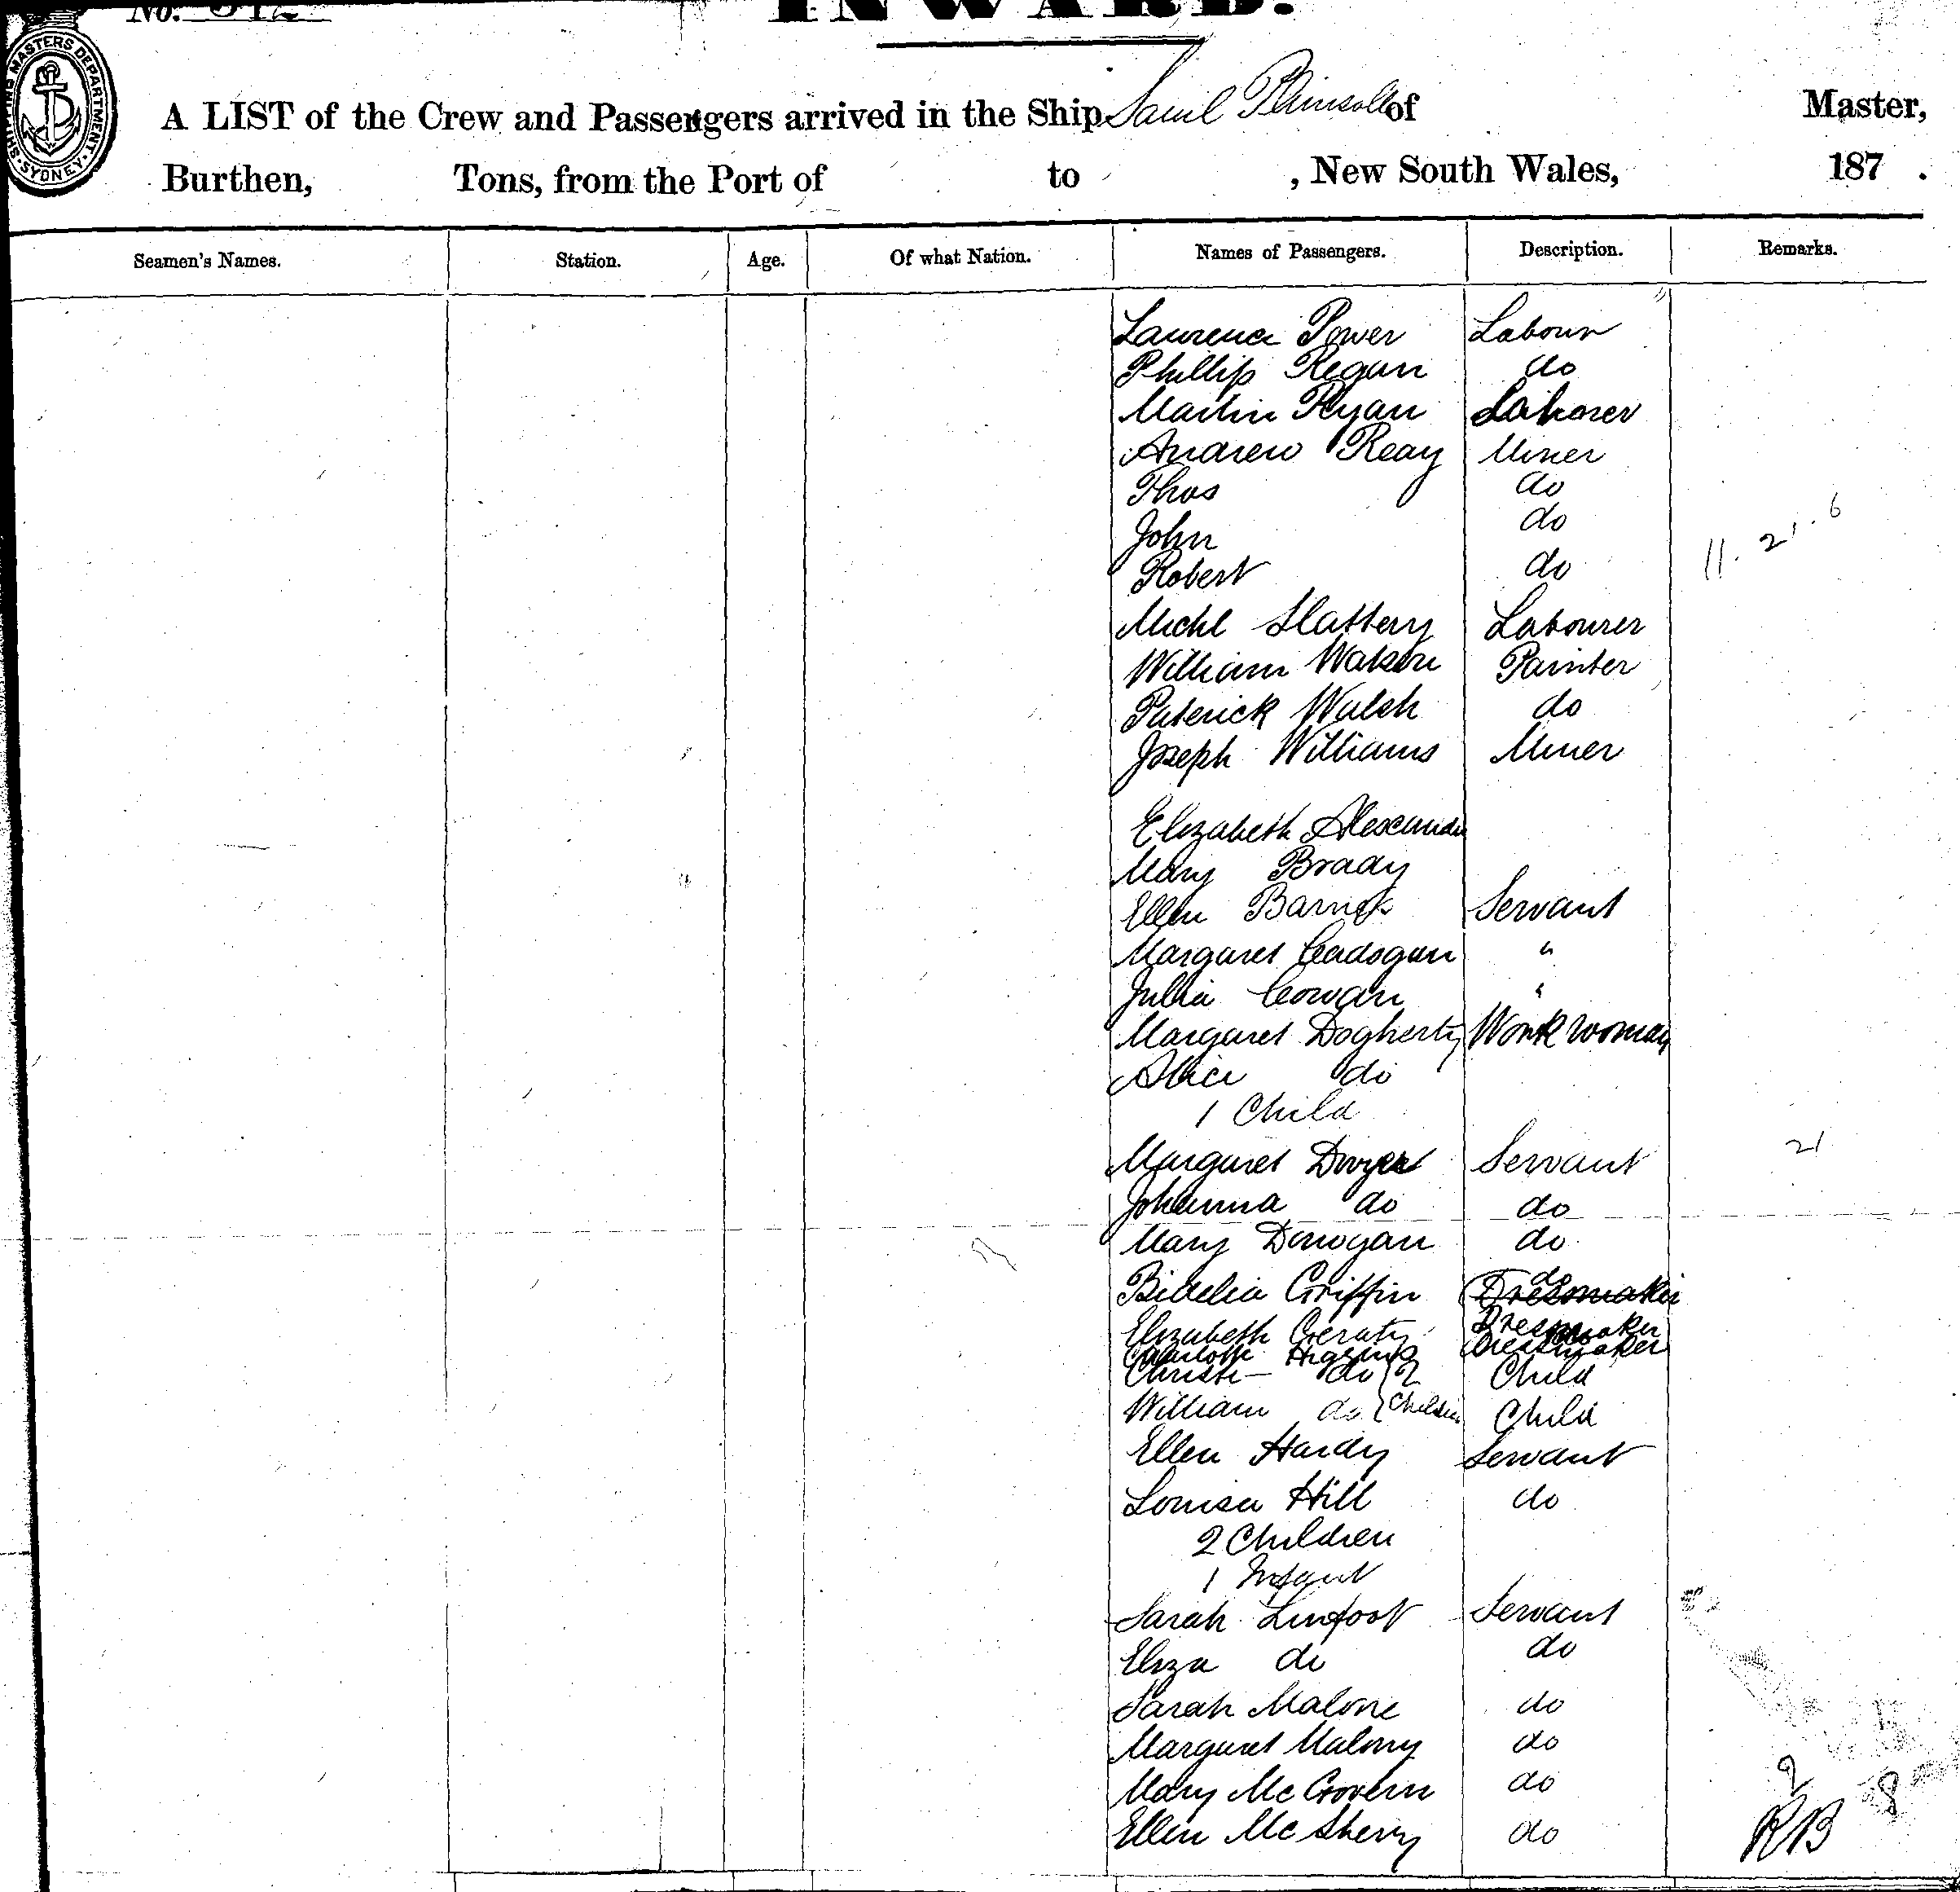 No. 512
INWARD.
SHIPPING MASTERS DEPARTMENT. SYDNEY
A LIST of the Crew and Passengers arrived in the Ship Saml Plimsoll of Master,
Burthen, Tons, from the Port of to , New South Wales, 187 .
Seamen's Names. Station. Age. Of what Nation. Names of Passengers. Description. Remarks.
Laurence Power Labour
Phillip Regan do
Martin Ryan Laborer
Andrew Reay Miner
Thos do
John do
Robert do 11. 21. 6
Michl Slattery Labourer
William Watson Painter
Paterick Walsh do
Joseph Williams Miner
Elizabeth Alexander
Mary Brady
Ellen Servant
Margaret Cadogan "
Julia Cowan "
Margaret Dogherty Work woman
Alice do
1 Child
Margaret Dwyer Servant 21
Johanna do do
Mary Donogan do
Bidelia Griffin Dressmaker do
Elizabeth Geraty Dressmaker
Charlotte Higgins Dressmaker
Christr do } 2 Child
William do } Children Child
Ellen Hardy Servant
Louisa Hill do
2 Children
1 Infant
Sarah Linfoot Servant
Eliza do do
Sarah Malone do
Margaret Malony do
Mary McGovern do 2 8
Ellen McSherry do RB